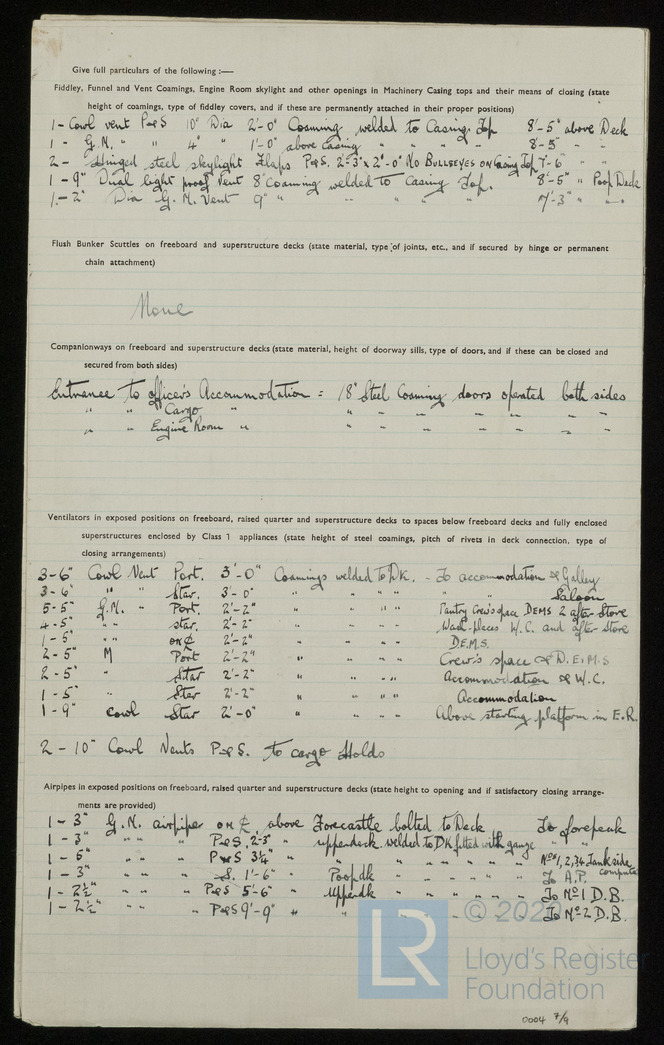 Give full particulars of the following :—
Fiddley, Funnel and Vent Coamings, Engine Room skylight and other openings in Machinery Casing tops and their means of closing (state
height of coamings, type of fiddley covers, and if these are permanently attached in their proper positions)
1 - Cowl vent P&S 10" Dia 2'-0" Coaming welded to Casing Top 8'-5" above Deck
1 - G.N. " " 4" " 1'-0" above Casing " " " " 8'-5" " "
2 - Hinged steel skylight Flaps P&S. 2'-3" x 2'-0" No BULLSEYES on Casing Top 7'-6" " "
1 - 9" Dual light proof Vent 8" Coaming welded to Casing Top. 8'-5" " Poop Deck
1 - 2" Dia G.N. Vent 9" " " " " " 7'-3" " " "
Flush Bunker Scuttles on freeboard and superstructure decks (state material, type of joints, etc., and if secured by hinge or permanent
chain attachment)
None
Companionways on freeboard and superstructure decks (state material, height of doorway sills, type of doors, and if these can be closed and
secured from both sides)
Entrance to officer's Accommodation = 18" Steel Coaming doors operated both sides
" " Cargo " " " " " " "
" " Engine Room " " " " " " "
Ventilators in exposed positions on freeboard, raised quarter and superstructure decks to spaces below freeboard decks and fully enclosed
superstructures enclosed by Class 1 appliances (state height of steel coamings, pitch of rivets in deck connection, type of
closing arrangements)
3 - 6" Cowl Vent Port. 3'-0" Coamings welded to Dk. - To accommodation & Galley
3 - 6" " " Star. 3'-0" " " " " " " Saloon
5 - 5" G.N. " Port. 2'-2" " " " " Pantry Crew's space DEMS 2 after Store
4 - 5" " " star. 2'-2" " " " " Wash places W.C. and after Store
1 - 5" " " on ₵ 2'-2" " " " " D.E.M.S.
2 - 5" M Port 2'-2" " " " " Crew's space & D.E.M.S
2 - 5" " Star 2'-2" " " " " Accommodation & W.C.
1 - 5" " Star 2'-2" " " " " Accommodation
1 - 9" cowl Star 2'-0" " " " " Above starting platform in E.R.
2 - 10" Cowl Vents P&S. to cargo Holds
Airpipes in exposed positions on freeboard, raised quarter and superstructure decks (state height to opening and if satisfactory closing arrange-
ments are provided)
1 - 3" G.N. airpipe on ₵, above Forecastle bolted to Deck To forepeak
1 - 3" " " " P&S, 2'-3" " upperdeck welded to DK fitted with gauze " "
1 - 5" " " P&S 3¼" " " " " " " Nos 1, 2, 3 4 Tank side
1 - 3" " " S. 1'-6" " Poop dk " " " " " To A.P.
1 - 2½" " " P&S 5'-6" " Upperdk " " " " " To No 1 D.B.
1 - 2½" " " P&S 9'-9" " " " " " " To No 2 D.B.
LR
Lloyd's Register
Foundation
0004 7/9